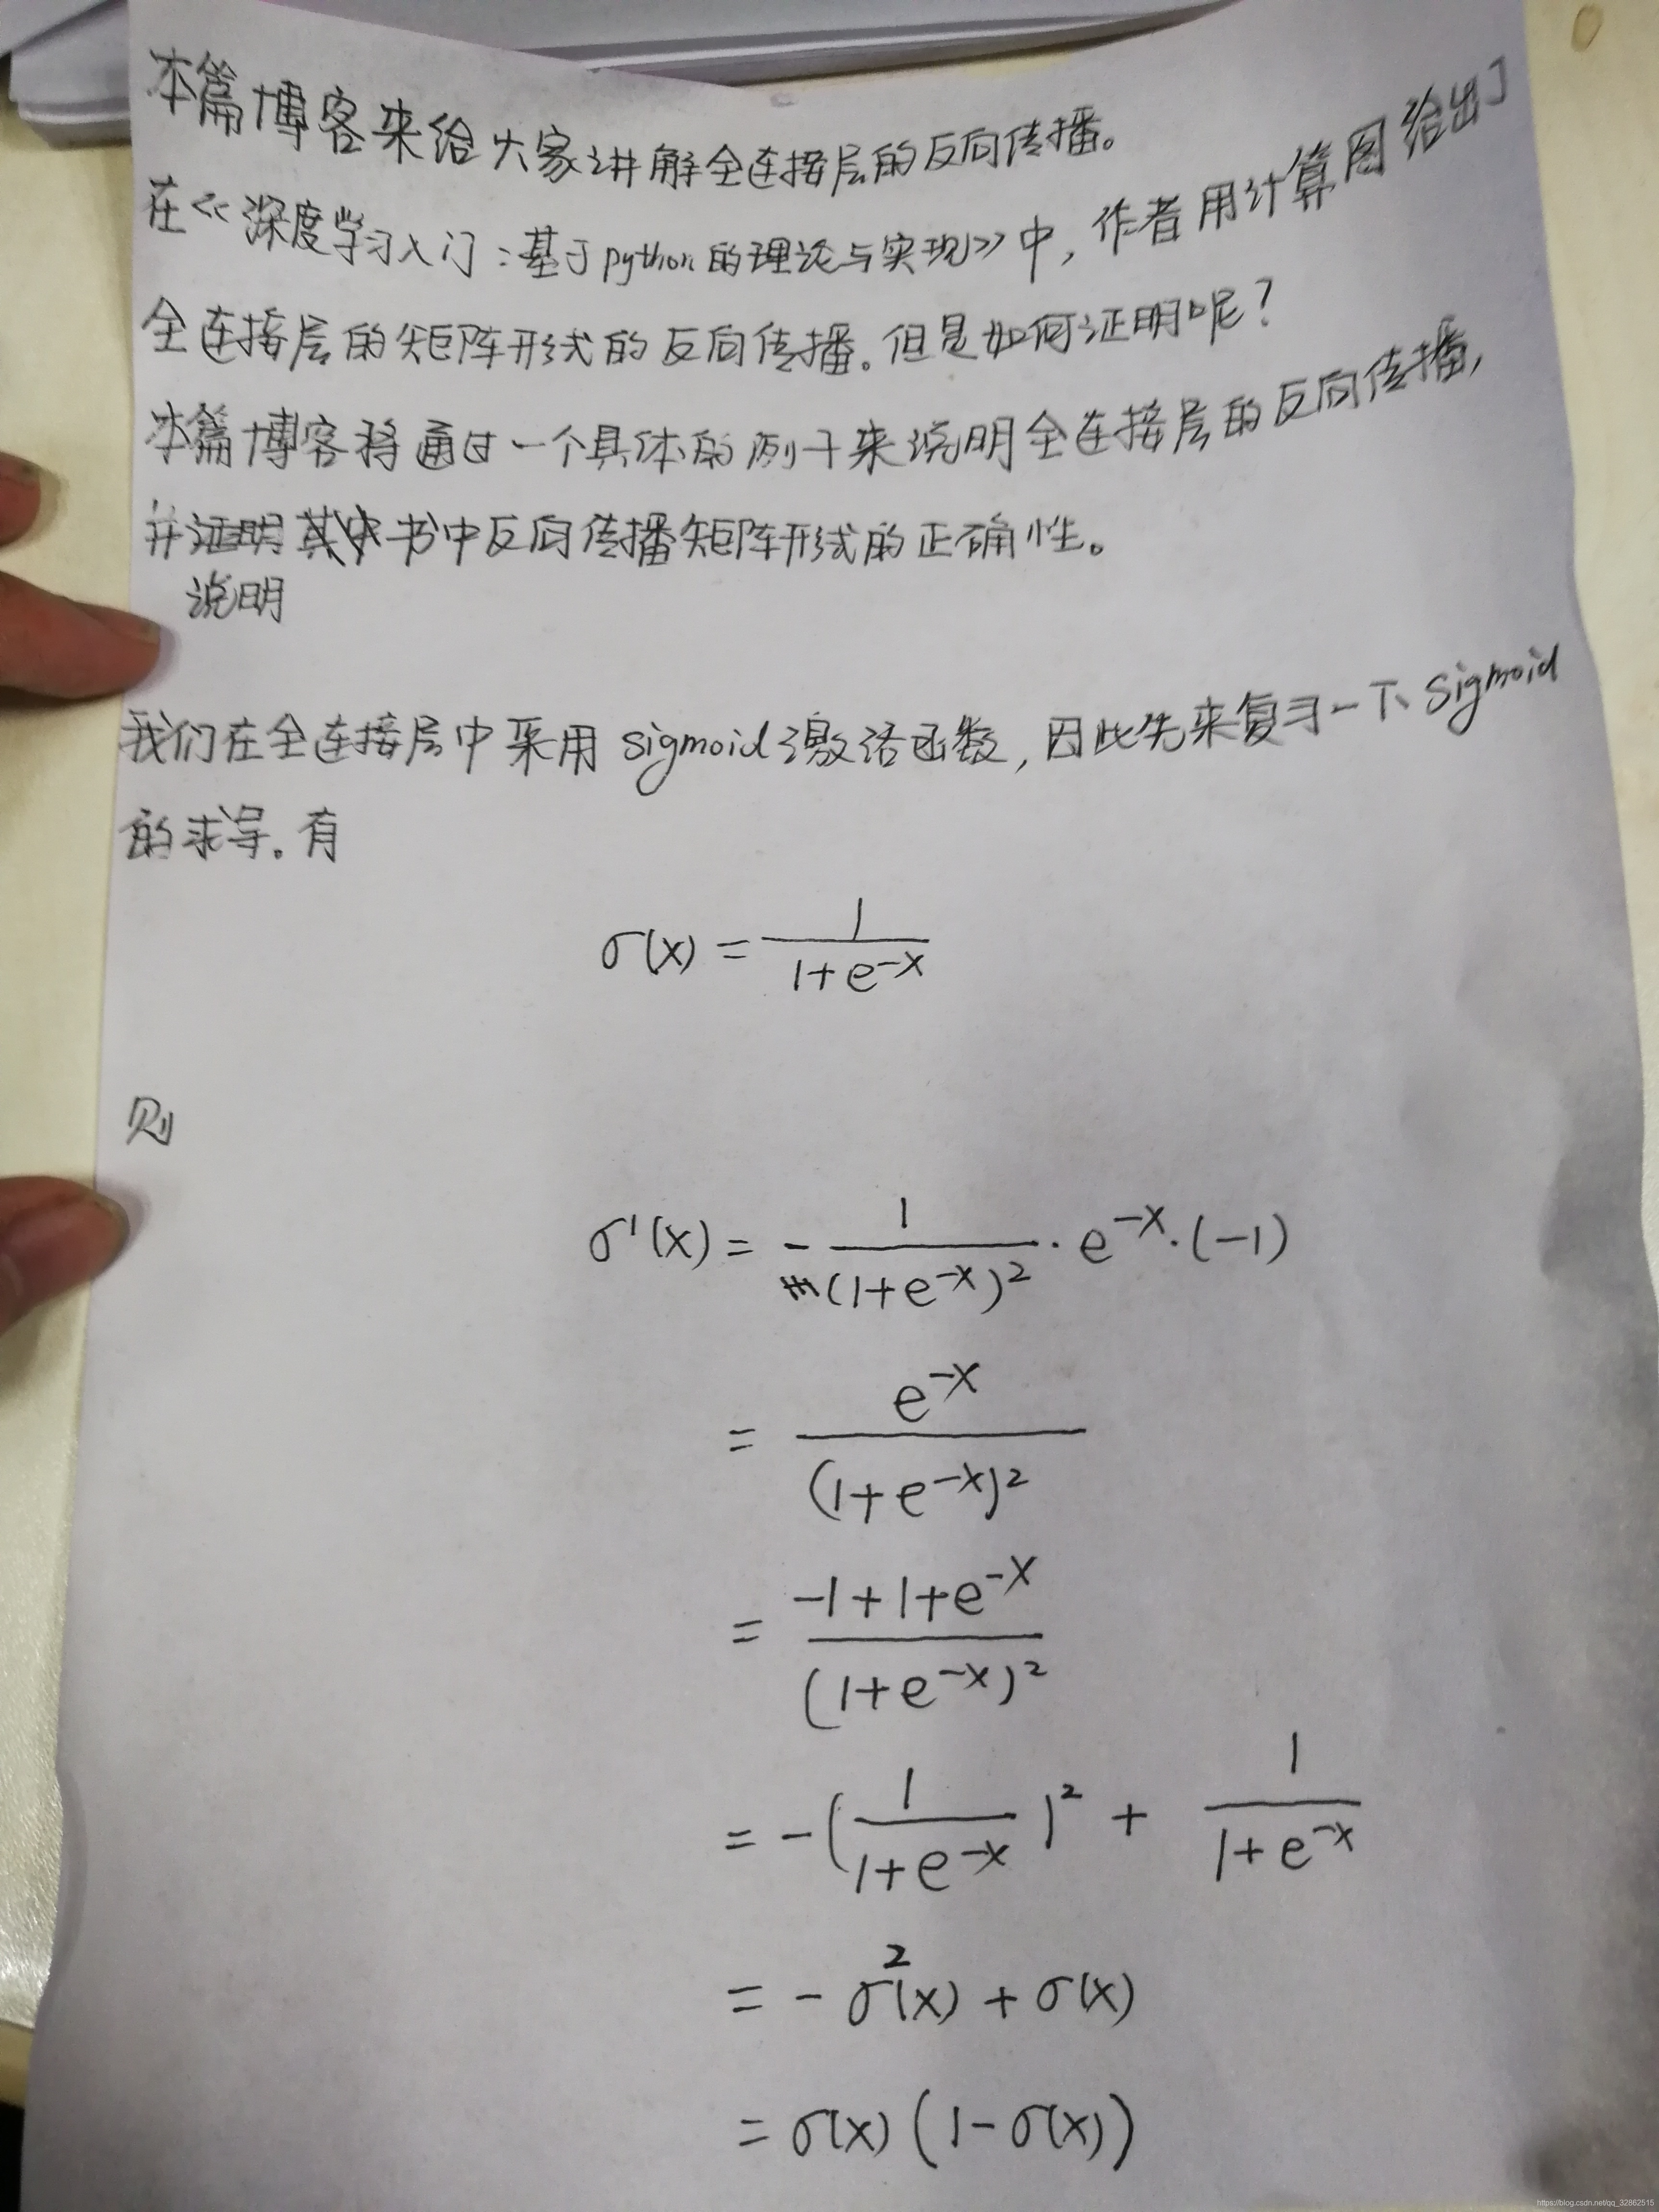 本篇博客来给大家讲解全连接层的反向传播。
在《深度学习入门:基于python的理论与实现》中,作者用计算图给出了
全连接层的矩阵形式的反向传播。但是如何证明呢?
本篇博客将通过一个具体的例子来说明全连接层的反向传播,
并证明其中书中反向传播矩阵形式的正确性。
说明
我们在全连接层中采用sigmoid激活函数,因此先来复习一下sigmoid
的求导。有
σ(x) = 1/(1+e^{-x})
则
σ'(x) = -1/(1+e^{-x})² · e^{-x} · (-1)
= e^{-x}/(1+e^{-x})²
= (-1+1+e^{-x})/(1+e^{-x})²
= -(1/(1+e^{-x}))² + 1/(1+e^{-x})
= -σ²(x) + σ(x)
= σ(x)(1-σ(x))
https://blog.csdn.net/qq_32862515